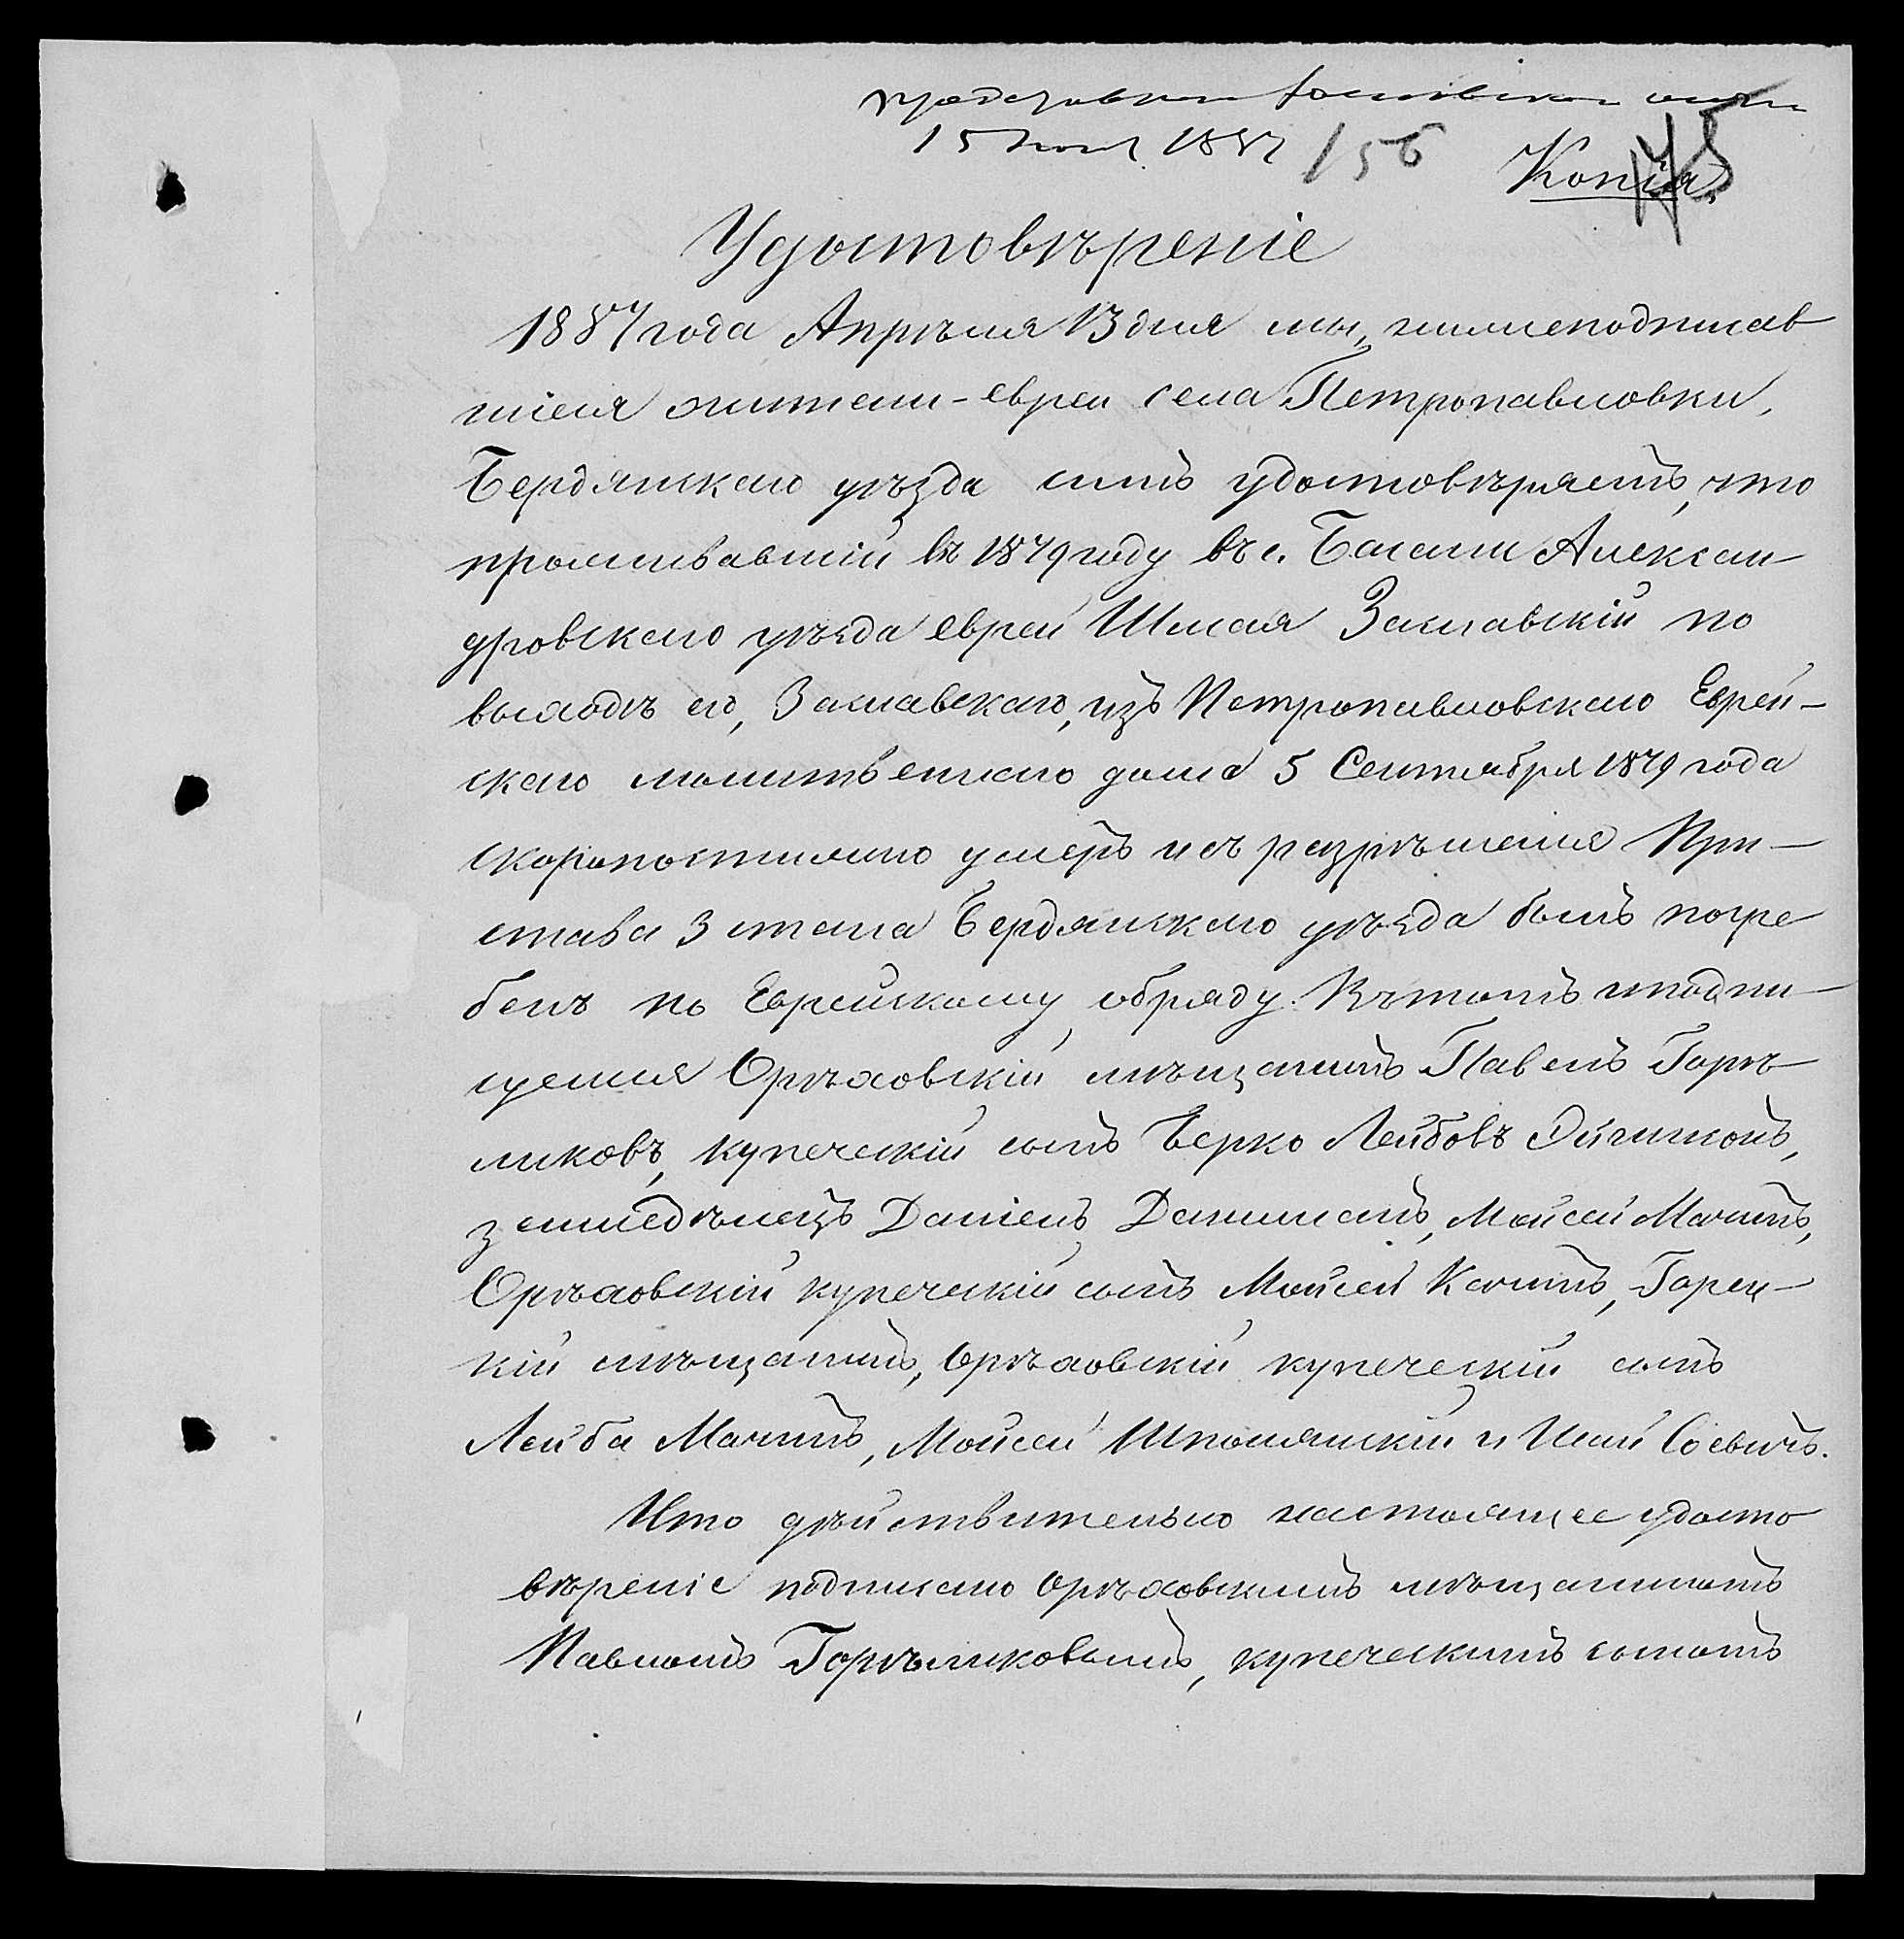 15 1887 156
Копія
Удостовѣреніе
1887 года Апрѣля 13 дня мы, нижеподписав
шіеся жители-евреи села Петропавловки,
Бердянскаго уѣзда симъ удостовѣряемъ, что
проживавшій въ 1879 году въ с. Басани Алексан
дровскаго уѣзда еврей Шмая Заславскій по
выходѣ его, Заславскаго, изъ Петропавловскаго Еврей-
скаго молитвеннаго дома 5 Сентября 1879 года
скоропостижно умеръ и съ разрѣшенія При-
става 3 стана Бердянскаго уѣзда былъ погре
бенъ по Еврейскому обряду. Въ томъ и подпи-
суемся Орѣховскій мѣщанинъ Павелъ Горѣ
ликовъ, купеческій сынъ Берко Лейбовъ
земледѣлецъ Даніелъ Мойсей Мачинъ,
Орѣховскій купеческій сынъ Мойсей Горец-
кій мѣщанинъ, Орѣховскій купеческій сынъ
Лейба Мачинъ, Мойсей Шполянскій и
Что дѣйствительно настоящее удосто
вѣреніе подписано Орѣховскимъ мѣщаниномъ
Павломъ Горѣликовымъ, купеческимъ сыномъ